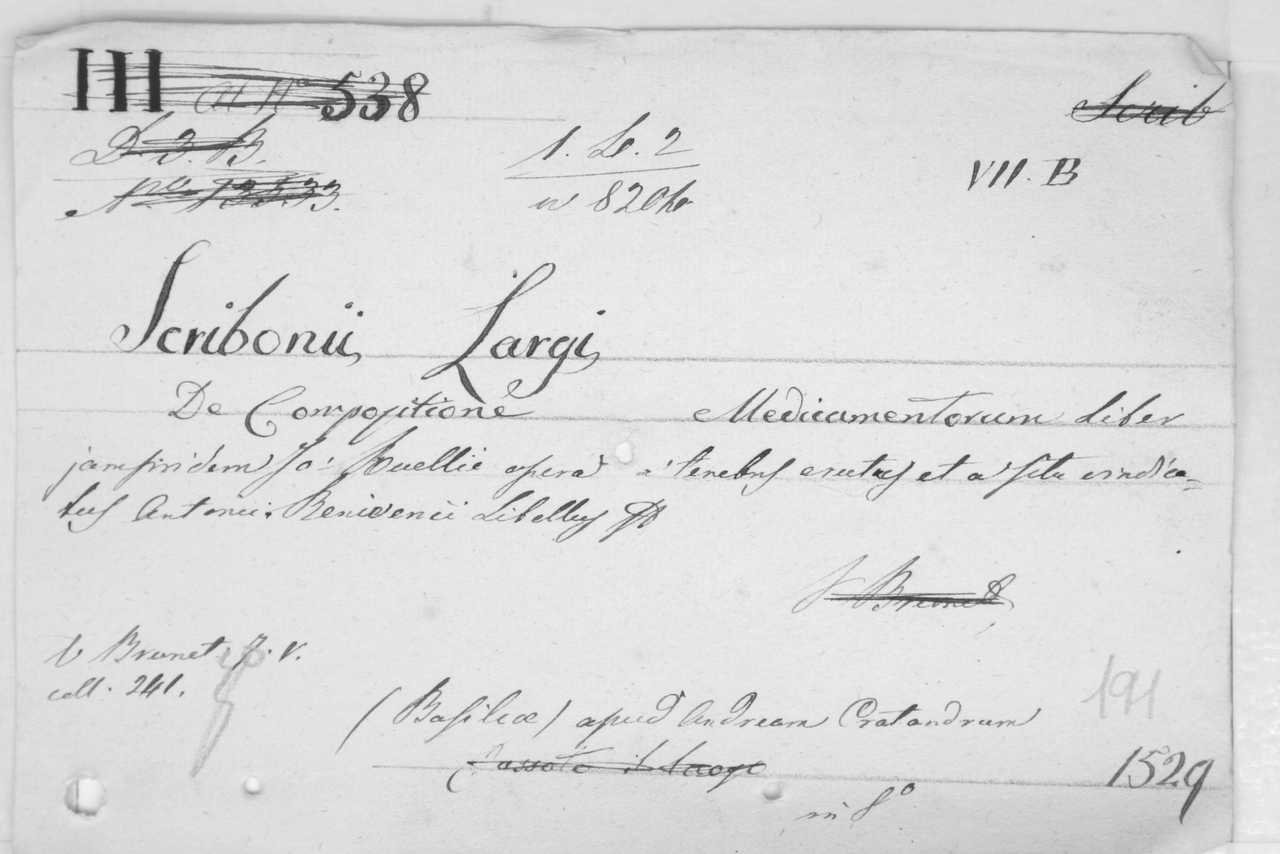 III 538 Scrib
D. 3. B. 1. Le. 2
VII. B
No. 13533.
Scribonii Largi
De Compositione Medicamentorum Liber
jampridem Jo: Ruellii opera a' tenebris erutus et a' situ vindica=
tus Antonii Benivenii Libellus
V Brunet
V Brunet T. V.
coll. 241.
191
(Basileæ) apud Andream Cratandrum
1529
in 8°